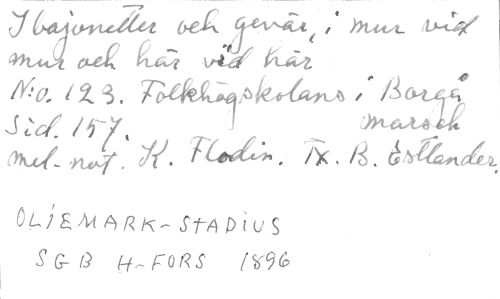 I bajonetter och gevär, i mur vid
mur och här vid här
N:o. 123. Folkhögskolans i Borgå
Sid. 157. marsch
mel-not. K. Flodin. Tx. B. Estlander.
OLIEMARK-STADIUS
SGB H-FORS 1896